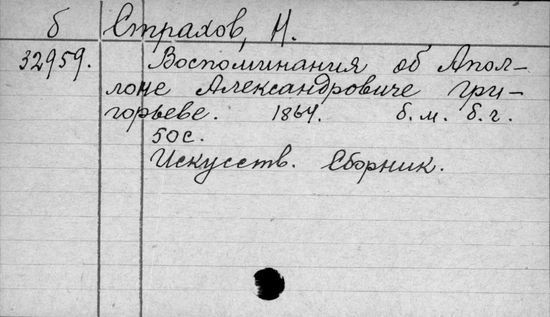 б Страхов, Н.
32959. Воспоминания об Апол-
лоне Александровиче Гри-
горьеве. 1864. б.м. б.г.
50 с.
Искусств. Сборник.